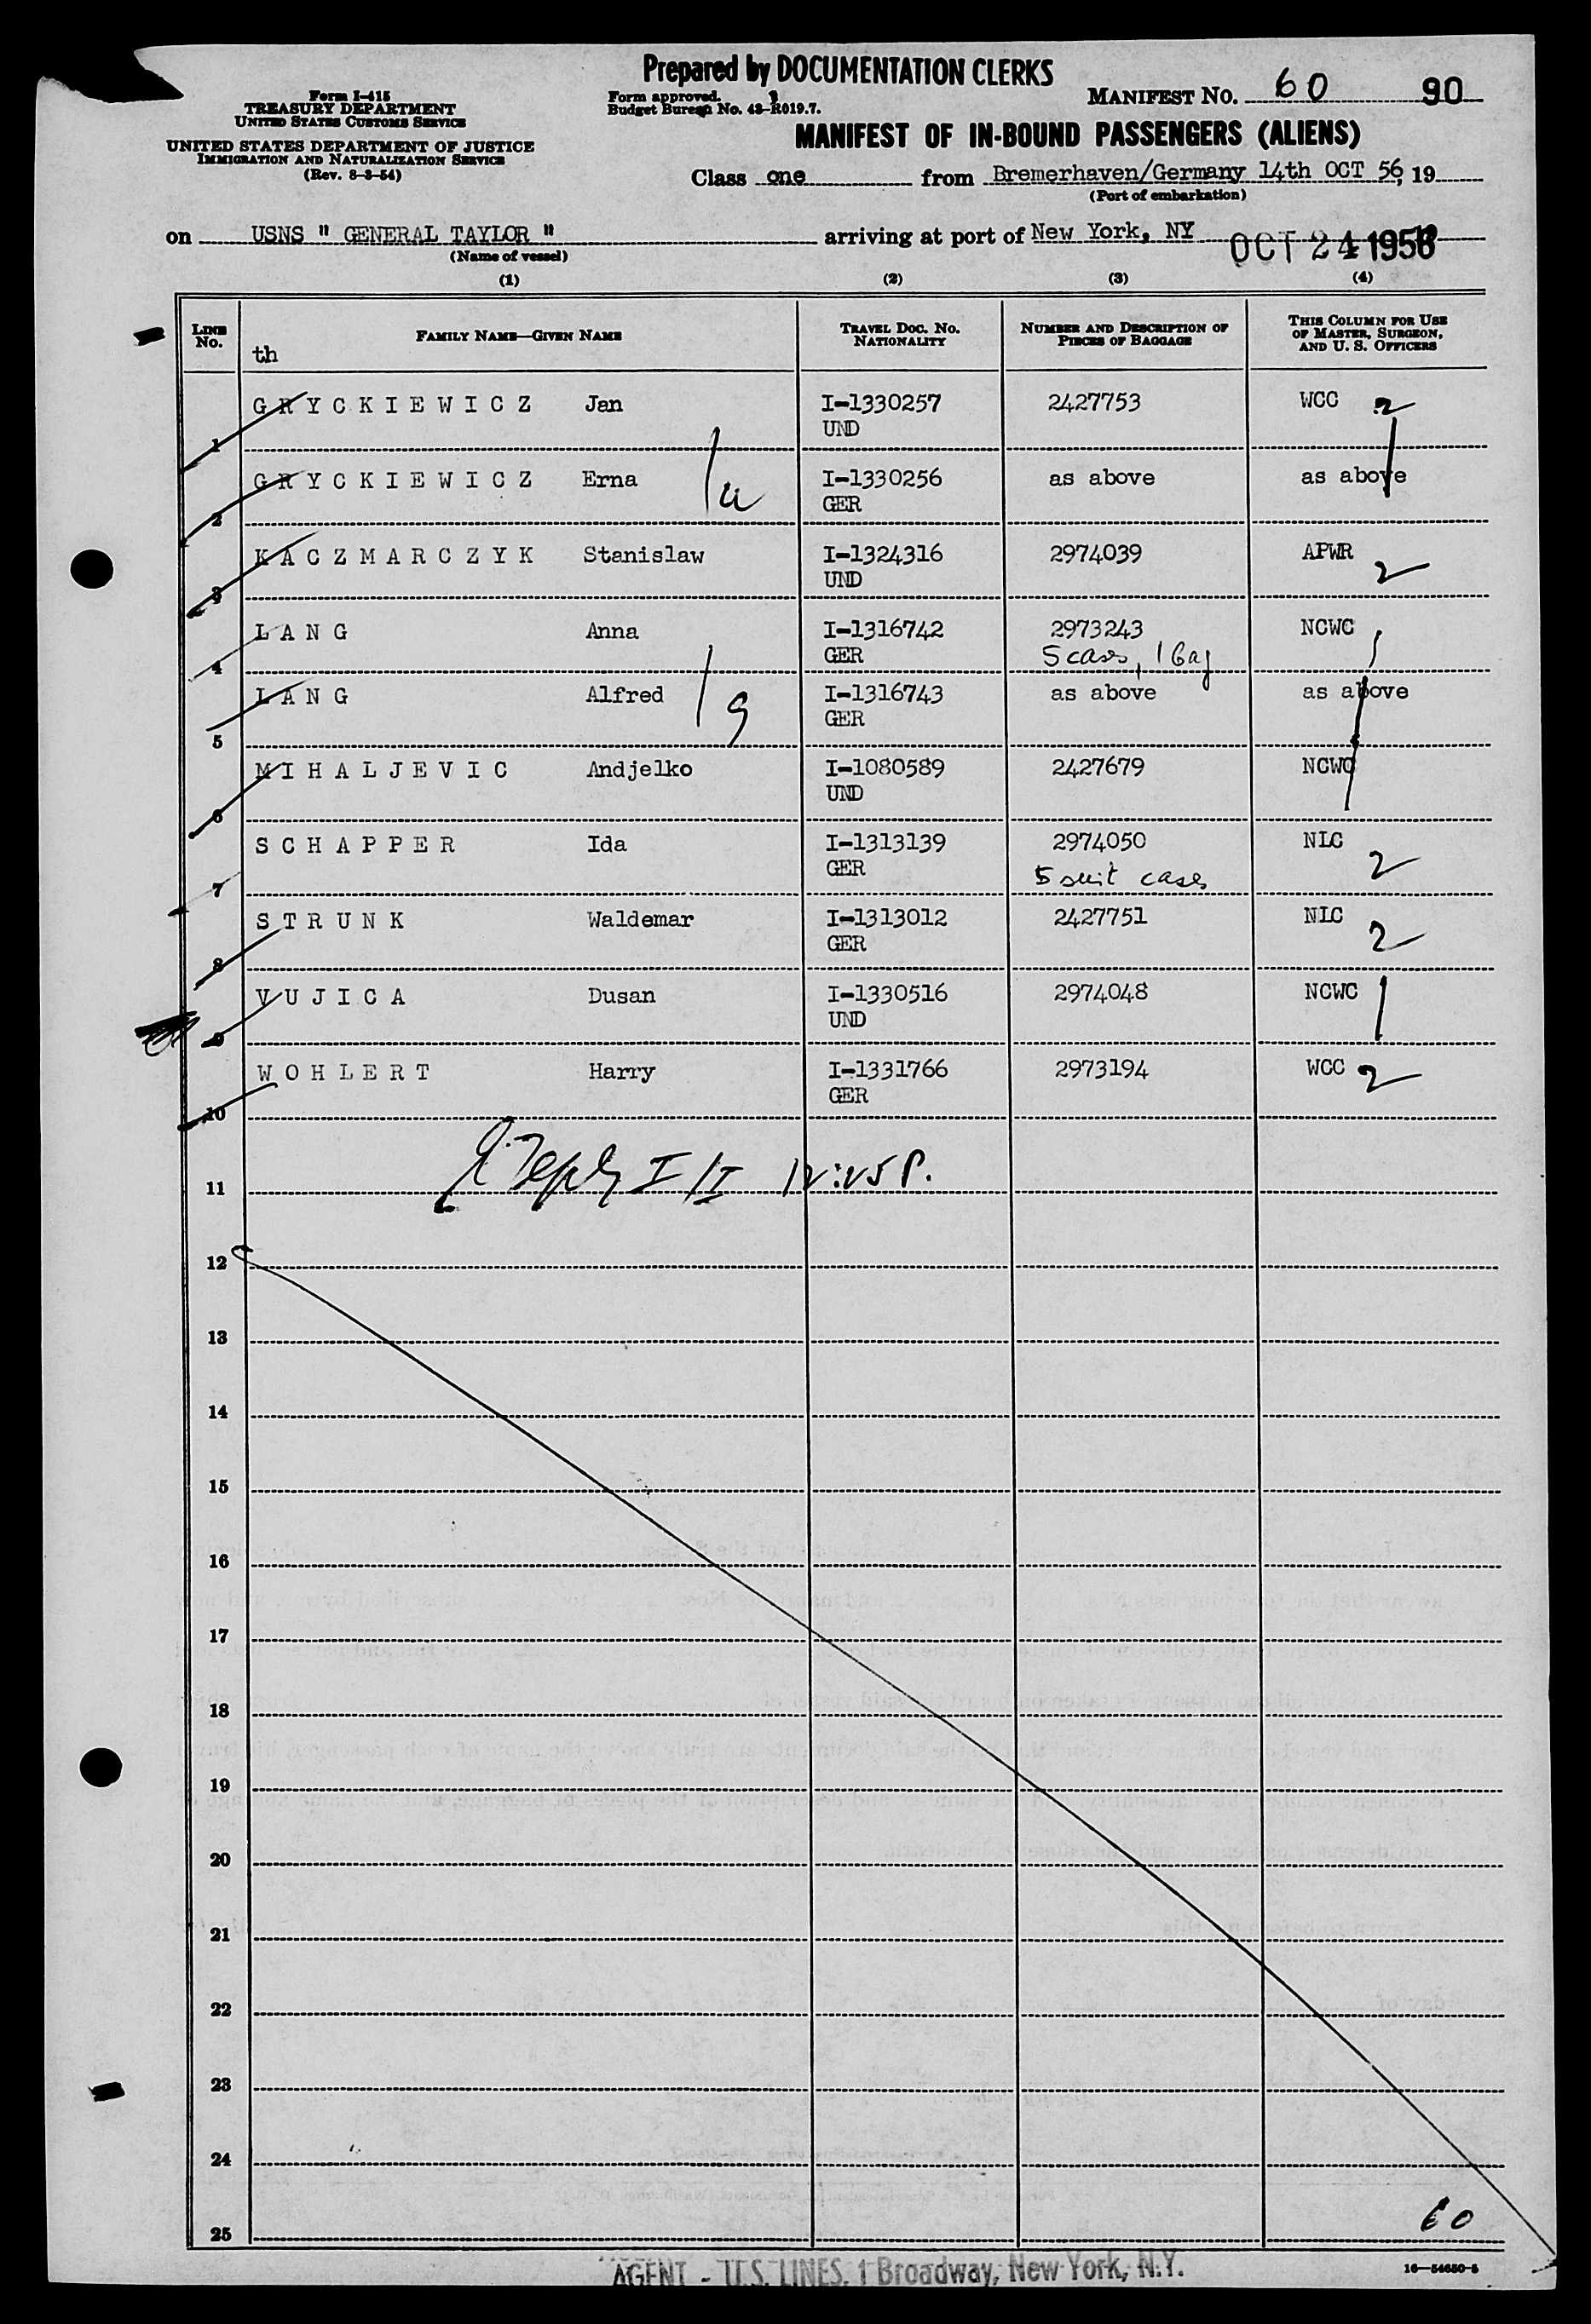 Prepared by DOCUMENTATION CLERKS
Form I-415
TREASURY DEPARTMENT
UNITED STATES CUSTOMS SERVICE
UNITED STATES DEPARTMENT OF JUSTICE
IMMIGRATION AND NATURALIZATION SERVICE
(Rev. 8-3-54)
Form approved.
Budget Bureau No. 43-R019.7.
MANIFEST NO. 60 90
MANIFEST OF IN-BOUND PASSENGERS (ALIENS)
Class one from Bremerhaven/Germany 14th OCT 56, 19
(Port of embarkation)
on USNS " GENERAL TAYLOR " arriving at port of New York, NY OCT 24 1956
(Name of vessel)
(1) (2) (3) (4)
LINE NO. FAMILY NAME—GIVEN NAME TRAVEL DOC. NO. NATIONALITY NUMBER AND DESCRIPTION OF PIECES OF BAGGAGE THIS COLUMN FOR USE OF MASTER, SURGEON, AND U. S. OFFICERS
th
GRYCKIEWICZ Jan I-1330257 2427753 WCC 2
1 UND
GRYCKIEWICZ Erna I-1330256 as above as above
2 GER
KACZMARCZYK Stanislaw I-1324316 2974039 APWR 2
3 UND
LANG Anna I-1316742 2973243 NCWC
4 GER 5 cases, 1 bag
LANG Alfred I-1316743 as above as above
5 GER
MIHALJEVIC Andjelko I-1080589 2427679 NCWC
6 UND
SCHAPPER Ida I-1313139 2974050 NLC 2
7 GER 5 suit cases
STRUNK Waldemar I-1313012 2427751 NLC 2
8 GER
VUJICA Dusan I-1330516 2974048 NCWC 1
9 UND
WOHLERT Harry I-1331766 2973194 WCC 2
10 GER
11 I/I 12:25 P.
12
13
14
15
16
17
18
19
20
21
22
23
24
25 60
AGENT - U.S. LINES, 1 Broadway, New York, N.Y.
16-54650-5